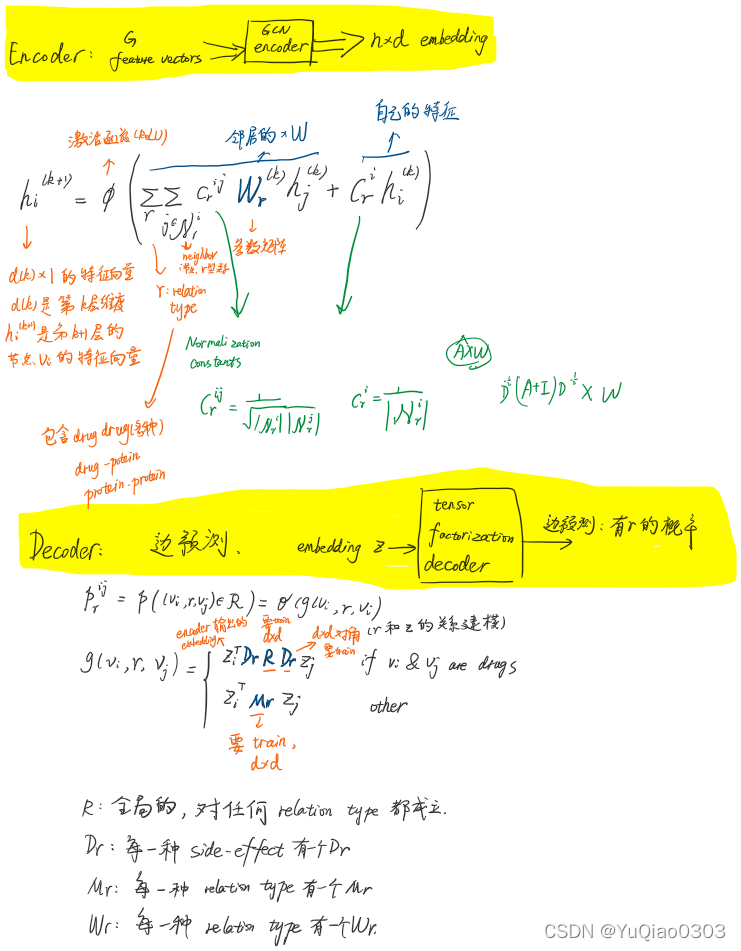 Encoder: G feature vectors → GCN encoder → n×d embedding
激活函数(ReLU)
邻居的×W
自己的特征
h_i^(k+1) = φ ( Σ_r Σ_{j∈N_r^i} C_r^{ij} W_r^(k) h_j^(k) + C_r^i h_i^(k) )
neighbor
参数矩阵
d(k)×1的特征向量
d(k)是第k层维度
h_i^(k+1)是第k+1层的
节点v_i的特征向量
r: relation
type
Normalization
constants
A×W
C_r^{ij} = 1/√(|N_r^i| |N_r^j|)
C_r^i = 1/|N_r^i|
(A+I) × W
包含drug drug(多种)
drug-potein
protein-protein
Decoder: 边预测. embedding z → tensor factorization decoder → 边预测: 有r的概率
P_r^{ij} = p((v_i,r,v_j)∈R) = σ(g(v_i,r,v_i)
encoder输出的
embedding
要train
d×d
d×d对角
要train
(r和z的关系建模)
g(v_i, r, v_j) = { z_i^T Dr R Dr z_j if v_i & v_j are drugs
z_i^T Mr z_j other
要train,
d×d
R: 全局的, 对任何relation type都成立.
Dr: 每一种side-effect有个Dr
Mr: 每一种relation type有一个Mr
Wr: 每一种relation type有一个Wr.
CSDN @YuQiao0303